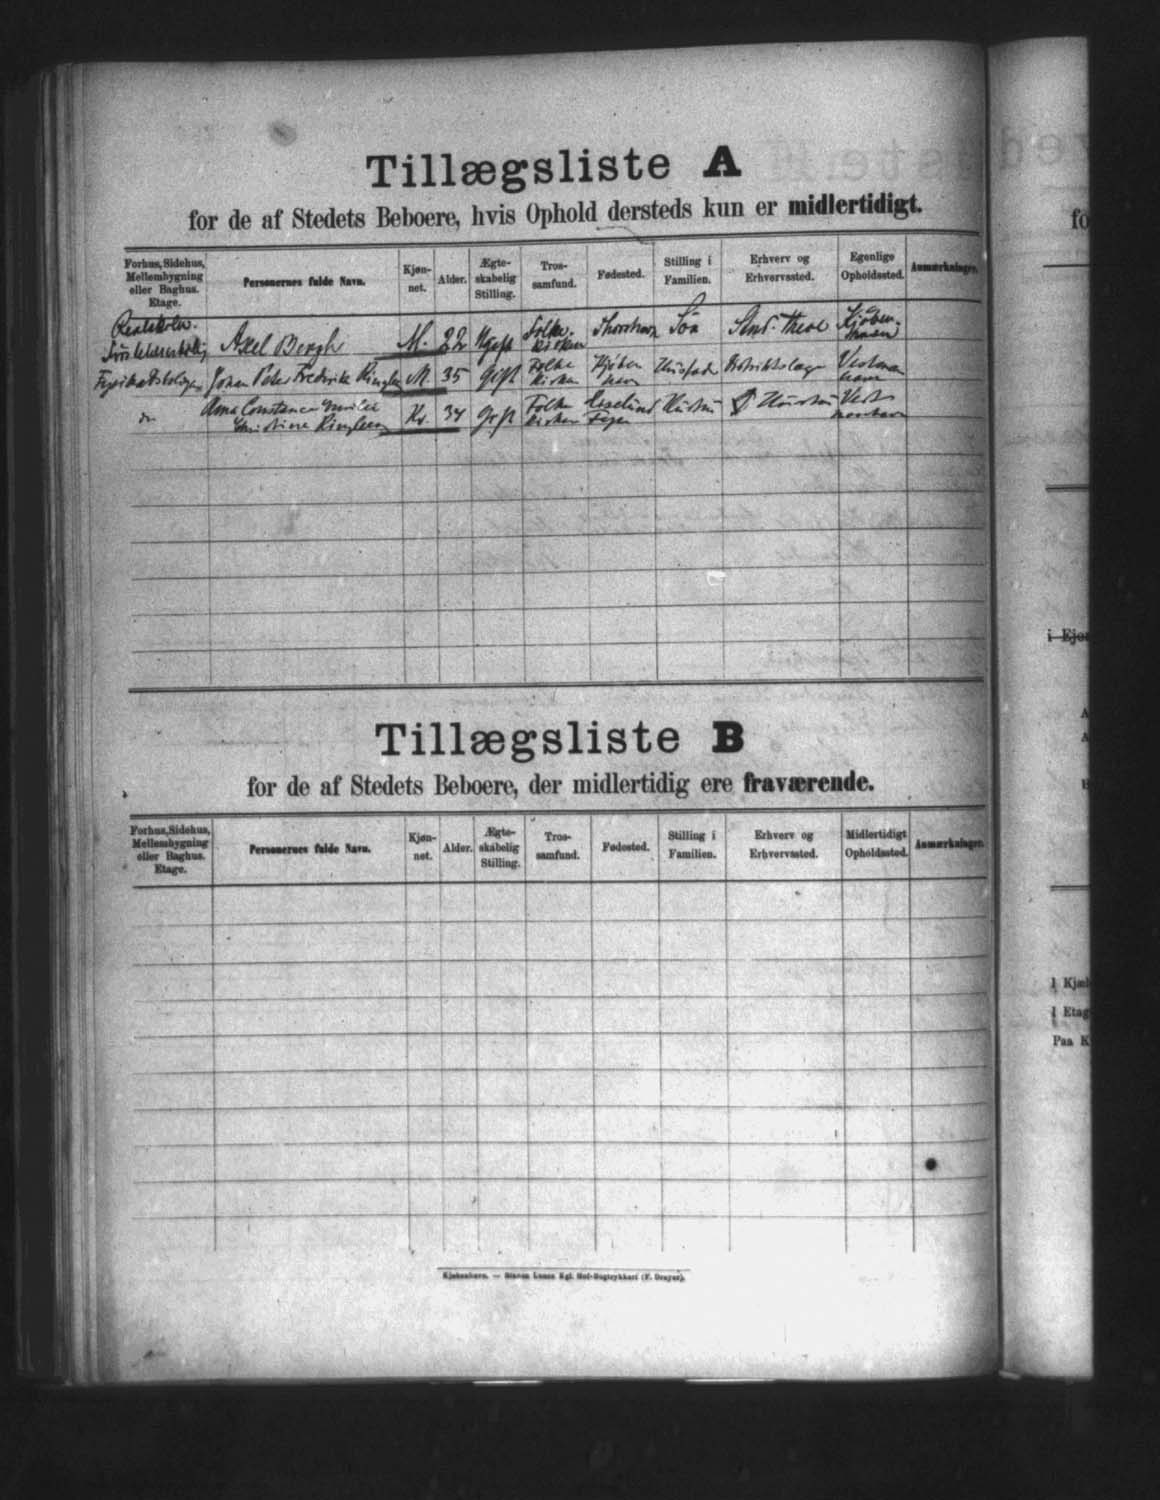 Tillægsliste A
for de af Stedets Beboere, hvis Ophold dersteds kun er midlertidigt.
Forhus, Sidehus, Mellembygning eller Baghus. Etage.
Personernes fulde Navn.
Kjøn-net.
Alder.
Ægte-skabelig Stilling.
Tros-samfund.
Fødested.
Stilling i Familien.
Erhverv og Erhvervssted.
Egenlige Opholdssted.
Anmærkninger.
Realskolen. Axel Bergh M. 22 Ugift Folke-kirken Thorshavn Søn Stud. Theol Kjøben-havn
Johan Peter Fredrik M. 35 gift Folke kirken Kjøben havn Husfader Distriktslæge Vestman havn
do Anna Constance Christine Kv. 34 gift Folke kirken Hustru Hustru Vest
Tillægsliste B
for de af Stedets Beboere, der midlertidig ere fraværende.
Forhus, Sidehus, Mellembygning eller Baghus. Etage.
Personernes fulde Navn.
Kjøn-net.
Alder.
Ægte-skabelig Stilling.
Tros-samfund.
Fødested.
Stilling i Familien.
Erhverv og Erhvervssted.
Midlertidigt Opholdssted.
Anmærkninger.
Kjøbenhavn. — Bianco Lunos Kgl. Hof-Bogtrykkeri (F. Dreyer).
fo
i Ejen
1 Kjæl
1 Etag
Paa K